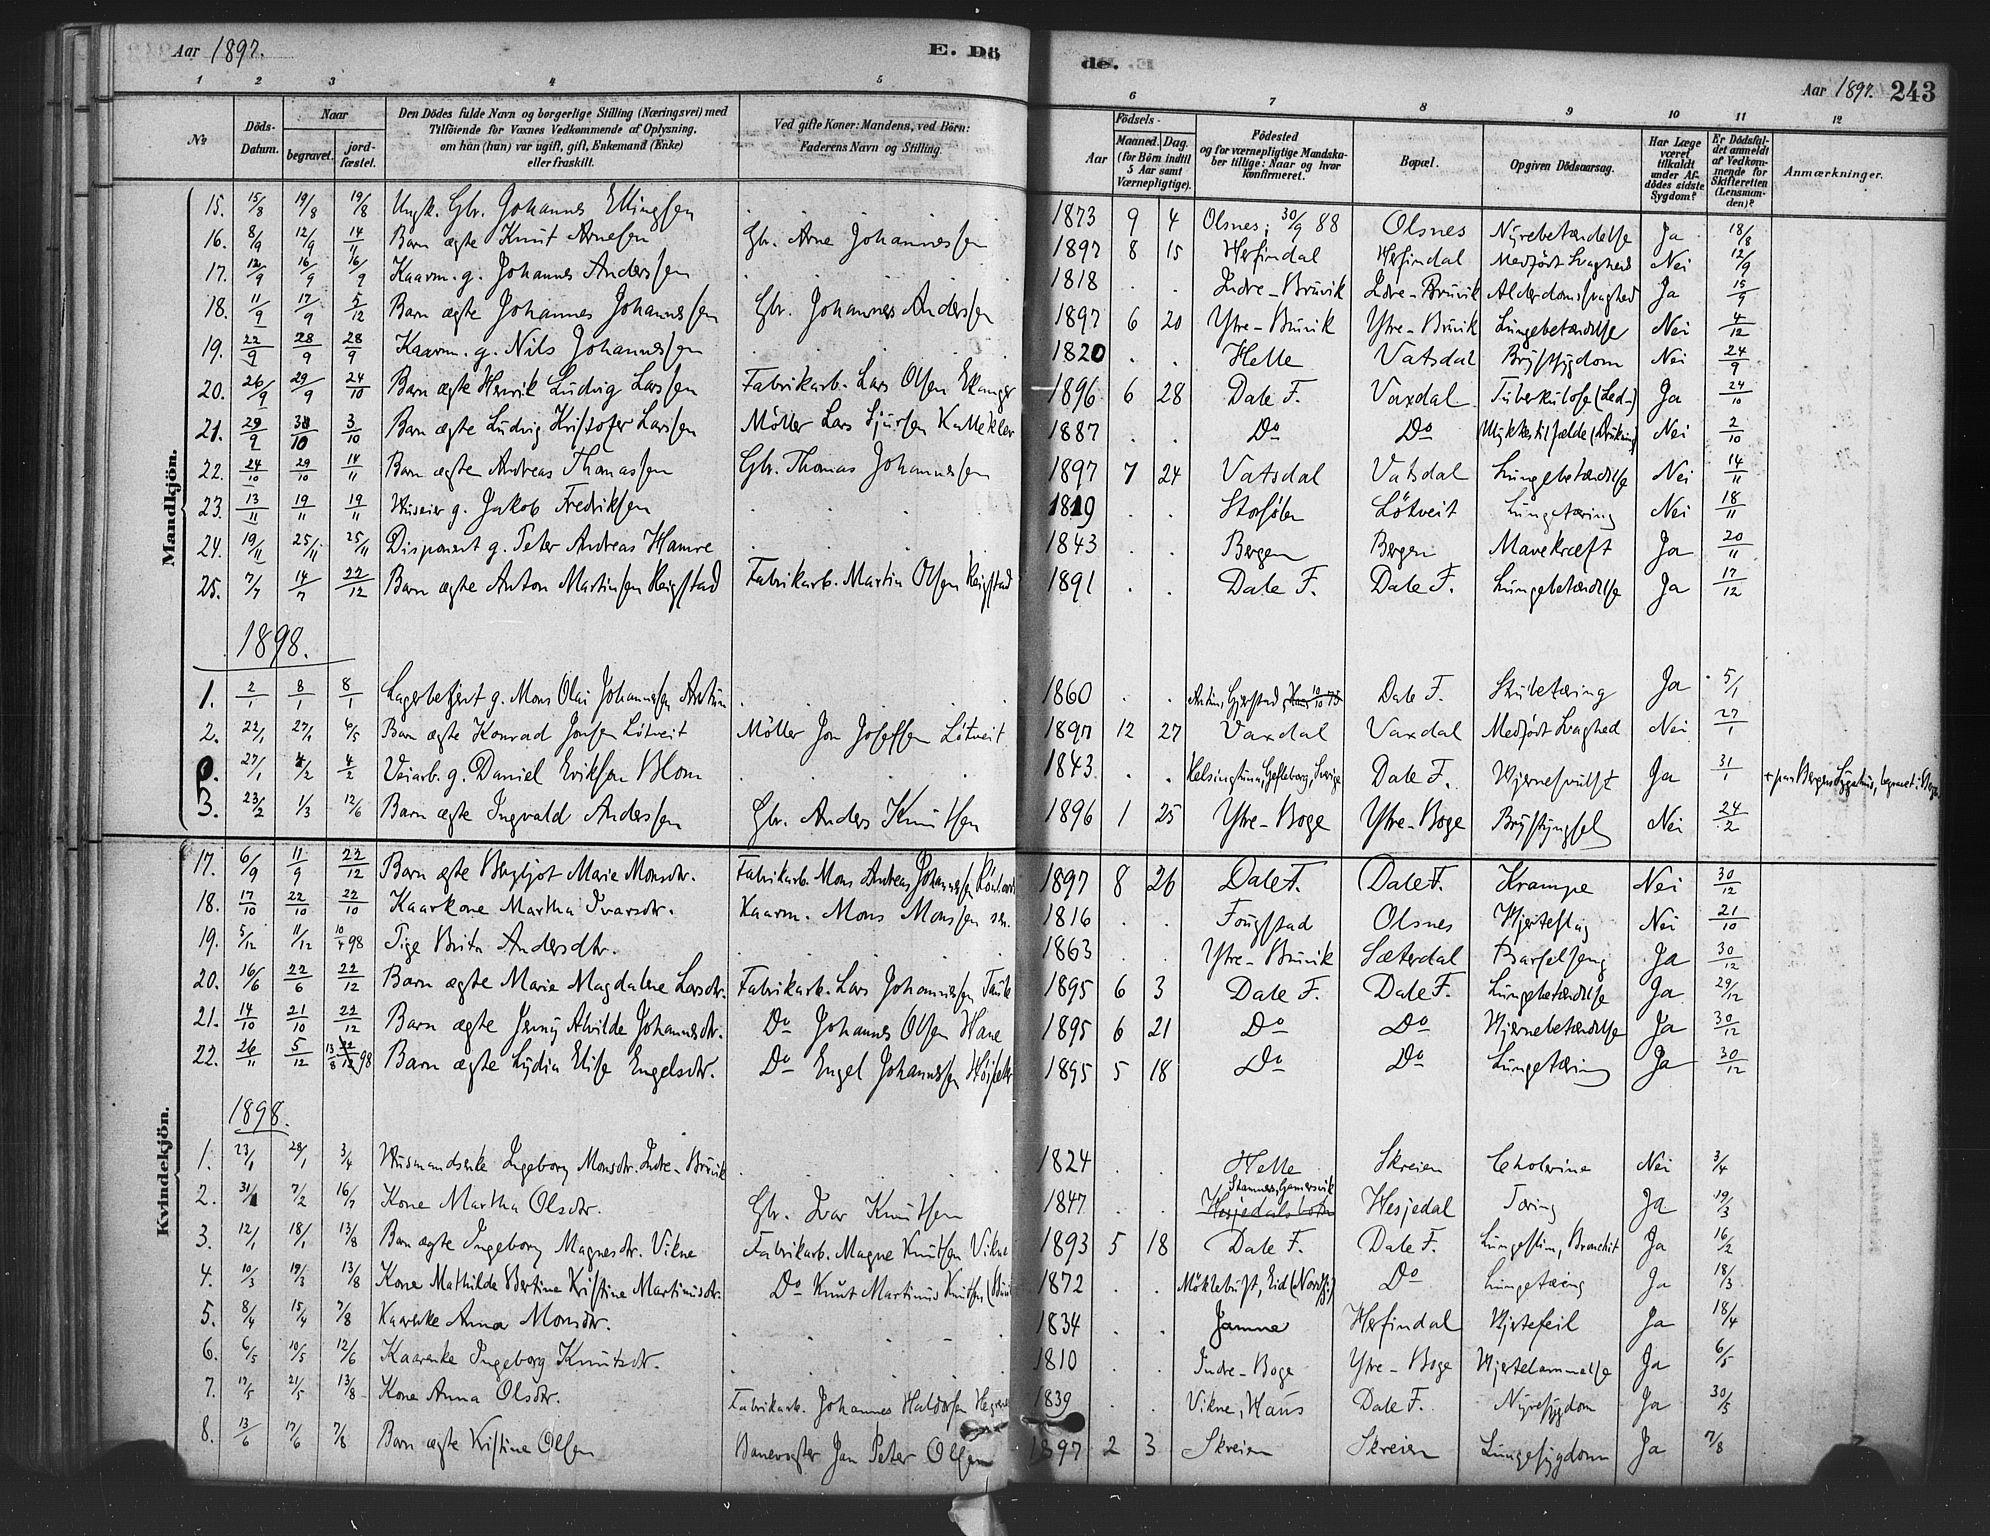 Aar 1897. E. Dö
de.
Aar 1897. 243
1 2 3 4 5 6 7 8 9 10 11 12
No
Döds-Datum.
Naar
begravet.
jordfæstet.
Den Dödes fulde Navn og borgerlige Stilling (Næringsvei) med
Tilföiende for Voxnes Vedkommende af Oplysning.
om han (hun) var ugift, gift, Enkemand (Enke)
eller fraskilt.
Ved gifte Koner: Mandens, ved Börn:
Faderens Navn og Stilling.
Födsels-
Aar
Maaned. Dag.
(for Börn indtil
5 Aar samt
Værnepligtige).
Födested
og for værnepligtige Mandska-
ber tillige: Naar og hvor
konfirmeret.
Bopæl.
Opgiven Dödsaarsag.
Har Læge
været
tilkaldt
under Af-
dödes sidste
Sygdom?
Er Dödsfal-
det anmeldt
af Vedkom-
mende for
Skifteretten
(Lensman-
den)?
Anmærkninger.
Mandkjön.
15. 15/8 19/8 19/8 Ungk. Gbr. Johannes Ellingsen . 1873 9 4 Olsnes; 30/9 88 Olsnes Nyrebetændelse Ja 18/8
16. 8/9 12/9 14/11 Barn ægte Knut Arnesen Gbr. Arne Johannessen 1897 8 15 Herfindal Herfindal Medfödt Svaghed Nei 12/9
17. 12/9 16/9 16/9 Kaarm. g. Johannes Anderssen . 1818 . . Indre-Bruvik Indre-Bruvik Alderdomssvaghed Ja 15/9
18. 11/9 17/9 5/12 Barn ægte Johannes Johannessen Gbr. Johannes Anderssen 1897 6 20 Ytre-Bruvik Ytre-Bruvik Lungebetændelse Nei 4/12
19. 22/9 28/9 28/9 Kaarm. g. Nils Johannessen . 1820 . . Helle Vatsdal Brystsygdom Nei 24/9
20. 26/9 29/9 24/10 Barn ægte Henrik Ludvig Larssen Fabrikarb. Lars Olsen Ekanger 1896 6 28 Dale F. Vaxdal Tuberkulose (Led-) Ja 24/10
21. 29/9 3/10 3/10 Barn ægte Ludvig Kristofer Larssen Möller Lars Sjursen Kallekler 1887 . . Do Do Ulykkestilfælde (Drukning) Nei 2/10
22. 24/10 29/10 14/11 Barn ægte Andreas Thomassen Gbr. Thomas Johannessen 1897 7 24 Vatsdal Vatsdal Lungebetændelse Nei 14/11
23. 13/11 19/11 19/11 Huseier g. Jakob Fredriksen . 1819 . . Lötveit Lungetæring Nei 18/11
24. 19/11 25/11 25/11 Disponent g. Peter Andreas Hamre . 1843 . . Bergen Bergen Mavekræft Ja 20/11
25. 7/7 14/7 22/12 Barn ægte Anton Martinsen Reigstad Fabrikarb. Martin Olsen Reigstad 1891 . . Dale F. Dale F. Lungebetændelse Ja 17/12
1898.
1. 2/1 8/1 8/1 Lagerbetjent g. Mons Olai Johannessen Arntun . 1860 . . Arntun, Gjerstad Dale F. Strubetæring Ja 5/1
2. 22/1 27/1 6/5 Barn ægte Konrad Jonsen Lötveit Möller Jon Josefsen Lötveit 1897 12 27 Vaxdal Vaxdal Medfödt Svaghed Nei 27/1
0. 27/1 4/2 4/2 Veiarb. g. Daniel Eriksen Blom . 1843 . . Helsingtuna, Gefleborg, Sverige Dale F. Hjernesvulst Ja 31/1 + paa Bergens Sygehus, begravet i Bergen
3. 23/2 1/3 12/6 Barn ægte Ingvald Anderssen Gbr. Anders Knutsen 1896 1 25 Ytre-Boge Ytre-Boge Brystsyngsel Nei 24/2
Kvindekjön.
17. 6/9 11/9 22/12 Barn ægte Bergljot Marie Monsdtr. Fabrikarb. Mons Andreas Johannessen 1897 8 26 Dale F. Dale F. Krampe Nei 30/12
18. 17/10 22/10 22/10 Kaarkone Martha Ivarsdtr. Kaarm. Mons Monssen sen. 1816 . . Fougstad Olsnes Hjerteslag Nei 21/10
19. 5/12 11/12 10/4 98 Pige Brita Andersdtr. . 1863 . . Ytre-Bruvik Sæterdal Barselseng Ja 30/12
20. 16/6 22/6 22/12 Barn ægte Marie Magdalene Larsdtr. Fabrikarb. Lars Johannessen Taule 1895 6 3 Dale F. Dale F. Lungebetændelse Ja 29/12
21. 14/10 21/10 22/12 Barn ægte Jenny Alvilde Johannesdtr. Do Johannes Olsen Hane 1895 6 21 Do Do Hjernebetændelse Ja 30/12
22. 26/11 5/12 13/8 98 Barn ægte Lydia Elise Engelsdtr. Do Engel Johannessen 1895 5 18 Do Do Lungetæring Ja 30/12
1898.
1. 23/1 28/1 3/4 Husmandsenke Ingeborg Monsdtr. Indre-Bruvik . 1824 . . Helle Skreien Cholerine Nei 3/4
2. 31/1 7/2 16/7 Kone Martha Olsdtr. Gbr. Ivar Knutsen 1847 . . Stamnes, Hamersvik Hesjedal Tæring Ja 19/3
3. 12/1 18/1 13/8 Barn ægte Ingeborg Magnesdtr. Vikne Fabrikarb. Magne Knutsen Vikne 1893 5 18 Dale F. Dale F. Lungeslim, Bronchit Ja 16/2
4. 10/3 19/3 13/8 Kone Mathilde Bertine Kristine Martinusdtr. Do Knut Martinus Knutsen 1872 . . Möklebust, Eid (Nordfj.) Do Lungetæring Ja 18/3
5. 8/4 15/4 7/8 Kaarenke Anna Monsdtr. . 1834 . . Jamne Herfindal Hjertefeil Ja 18/4
6. 6/5 10/5 12/6 Kaarenke Ingeborg Knutsdtr. . 1810 . . Indre-Boge Ytre-Boge Hjertelammelse Ja 6/5
7. 17/5 21/5 13/8 Kone Anna Olsdtr. Fabrikarb. Johannes Haldorsen 1839 . . Vikne, Haus Dale F. Nyresygdom Ja 30/5
8. 13/6 17/6 7/8 Barn ægte Kristine Olsen Banevogter Jan Peter Olsen 1897 2 3 Skreien Skreien Lungesygdom Ja 7/8